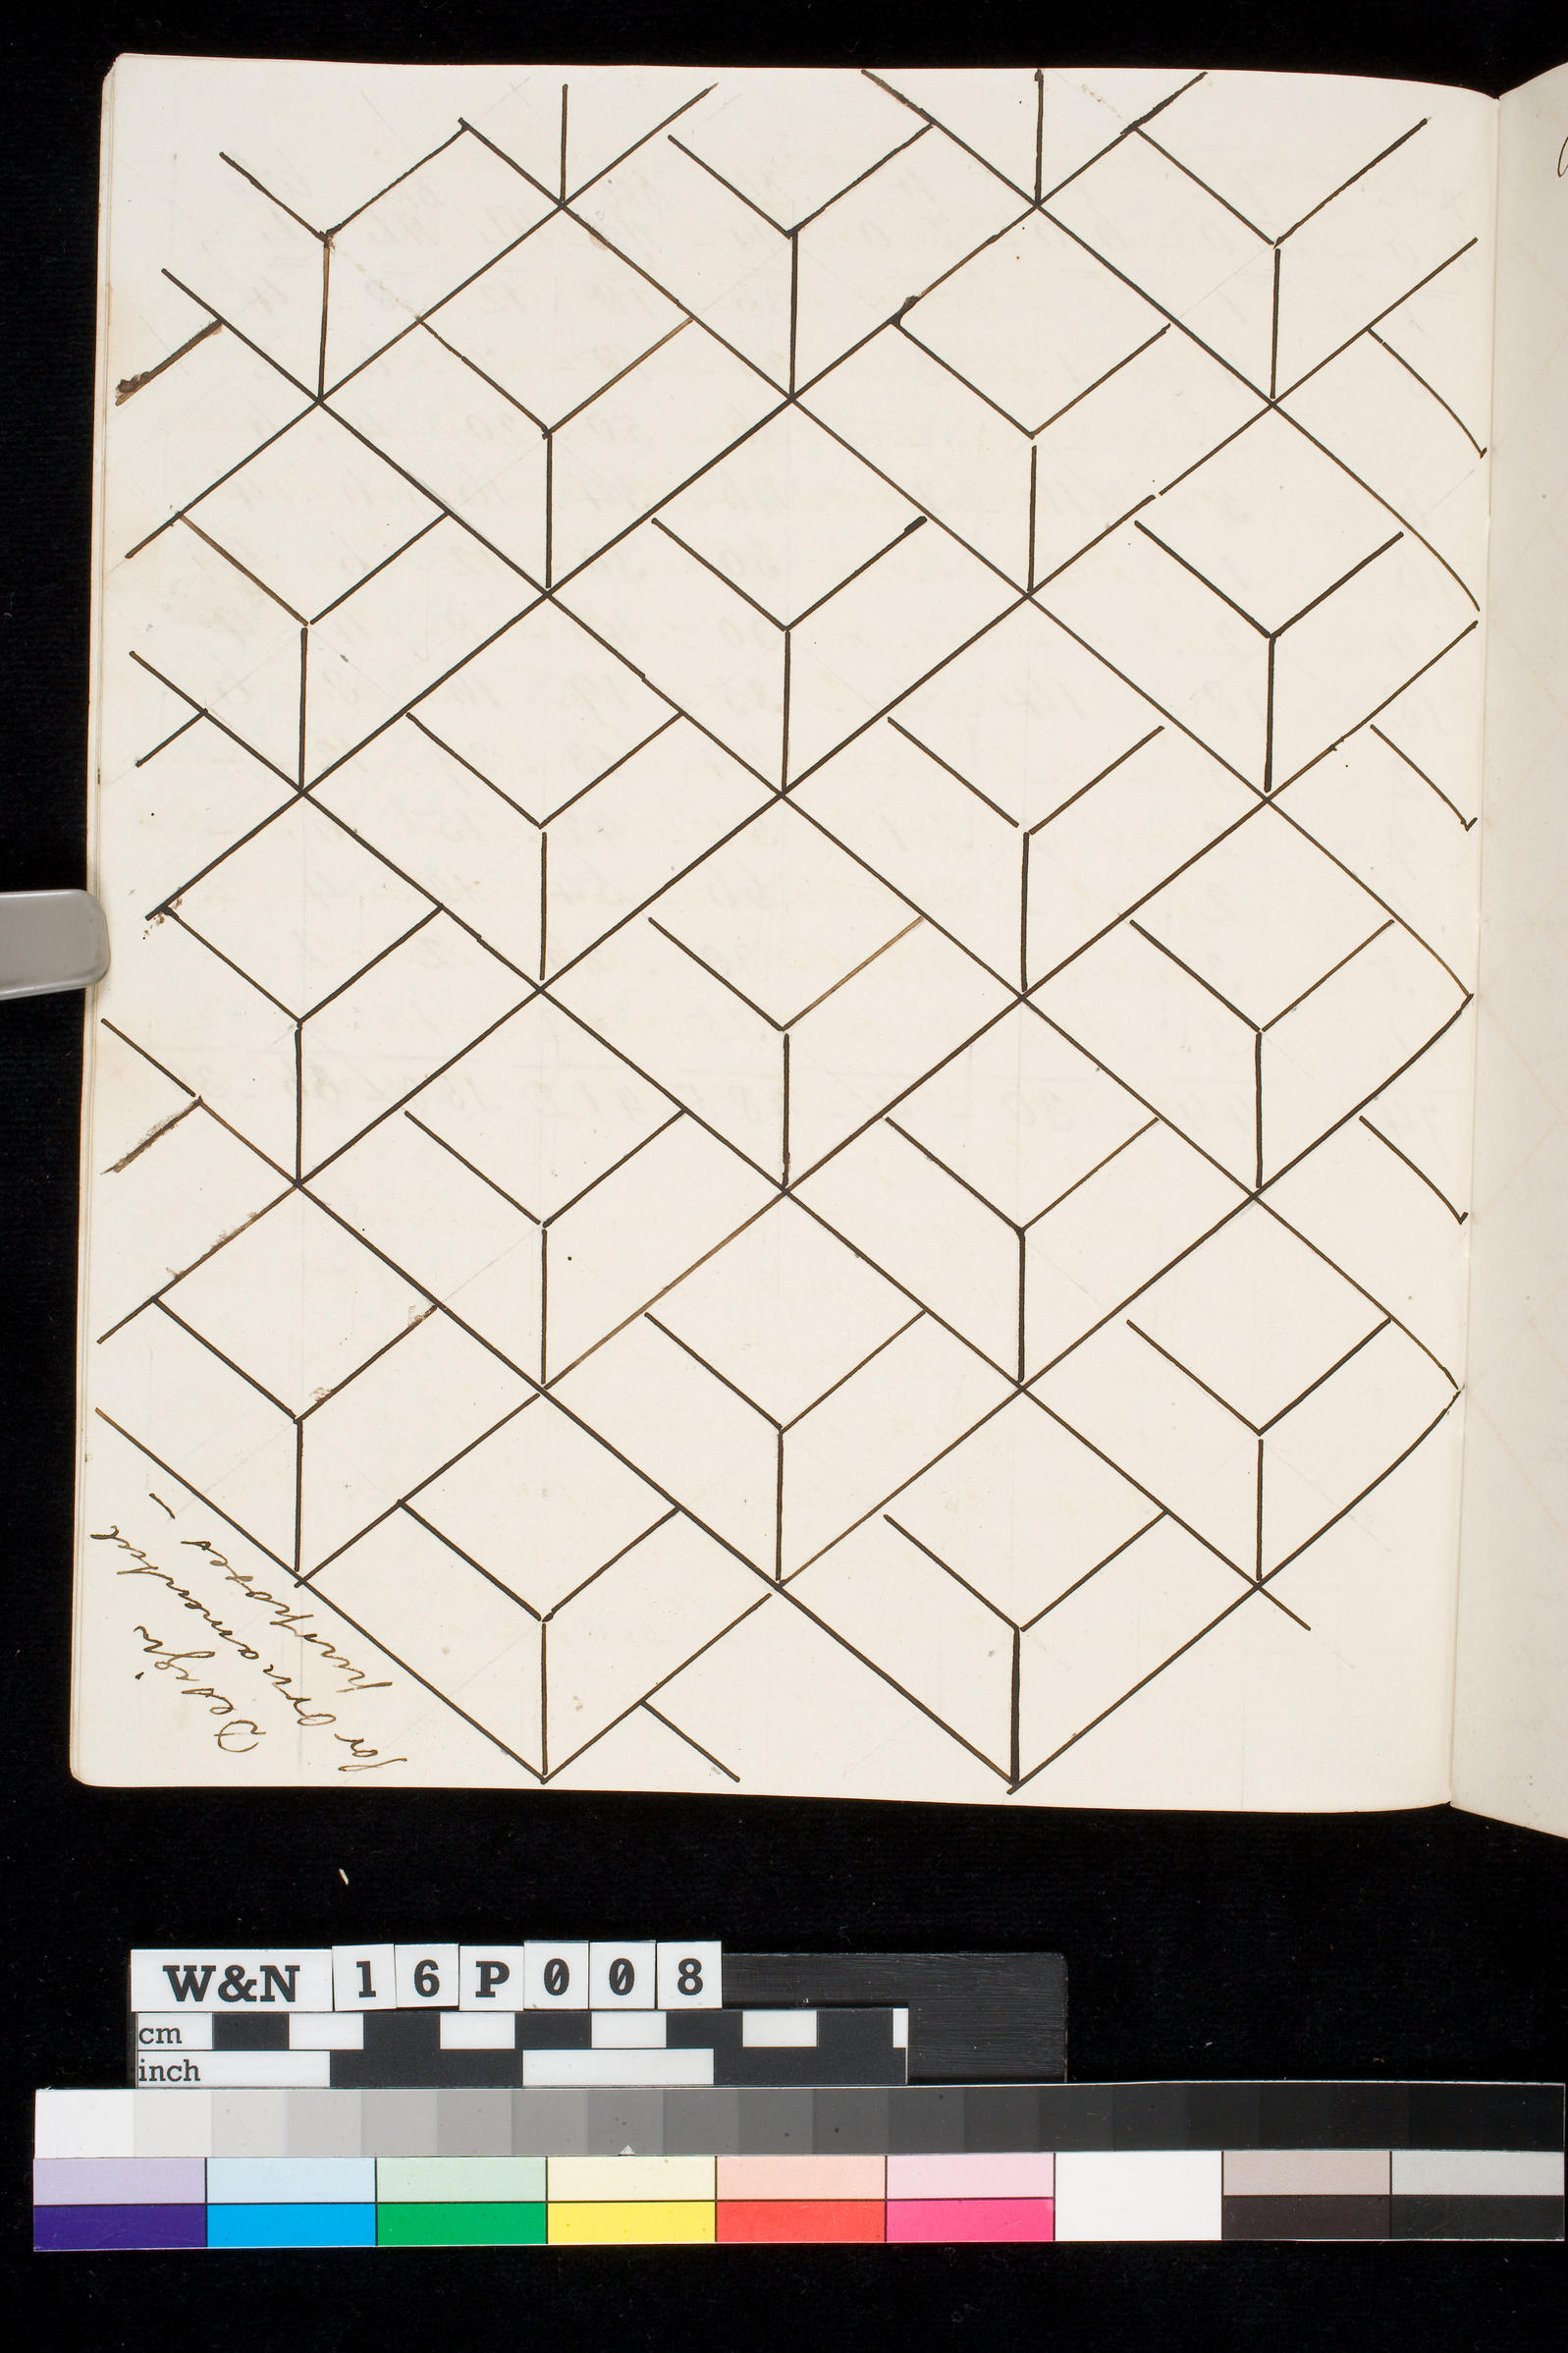 Design
for Ornamental
purposes –
W&N 16P008
cm
inch